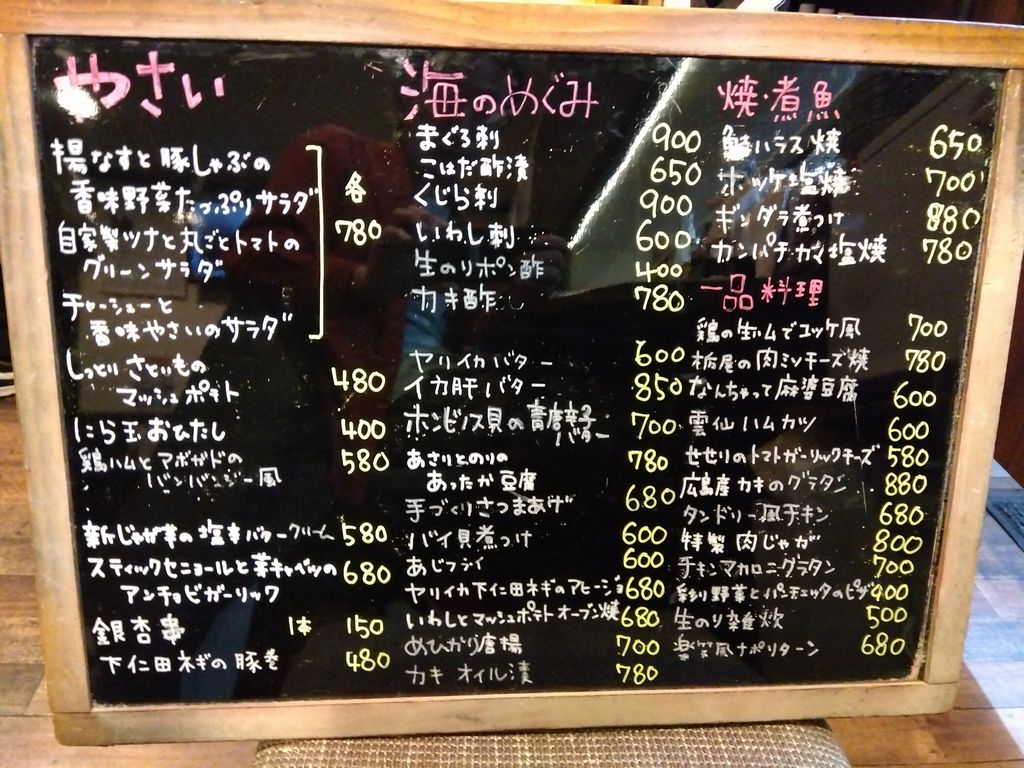 やさい
揚なすと豚しゃぶの
香味野菜たっぷりサラダ
自家製ツナと丸ごとトマトの
グリーンサラダ
チャーシューと
香味やさいのサラダ
各
780
しっとりさといもの
マッシュポテト 480
にら玉おひたし 400
鶏ハムとアボガドの 580
バンバンジー風
新じゃが芋の塩辛バタークリーム 580
スティックセニョールと菜キャベツの 680
アンチョビガーリック
銀杏串 1本 150
下仁田ネギの豚巻 480
海のめぐみ
まぐろ刺 900
こはだ酢漬 650
くじら刺 900
いわし刺 600
生のりポン酢 400
カキ酢 780
ヤリイカバター 600
イカ肝バター 850
ホンビノス貝の青唐辛子 700
バター
あさりとのりの 780
あったか豆腐
手づくりさつまあげ 680
バイ貝煮つけ 600
あじフライ 600
ヤリイカ下仁田ネギのアヒージョ 680
いわしとマッシュポテトオーブン焼 680
めひかり唐揚 700
カキオイル漬 780
焼・煮魚
鮭ハラス焼 650
ホッケ塩焼 700
ギンダラ煮つけ 880
カンパチカマ塩焼 780
一品料理
鶏の生ハムでユッケ風 700
栃尾の肉ミソチーズ焼 780
なんちゃって麻婆豆腐 600
雲仙ハムカツ 600
せせりのトマトガーリックチーズ 580
広島産カキのグラタン 880
タンドリー風チキン 680
特製肉じゃが 800
チキンマカロニグラタン 700
彩り野菜とパンチェッタのピザ 400
生のり雑炊 500
楽笑風ナポリターン 680